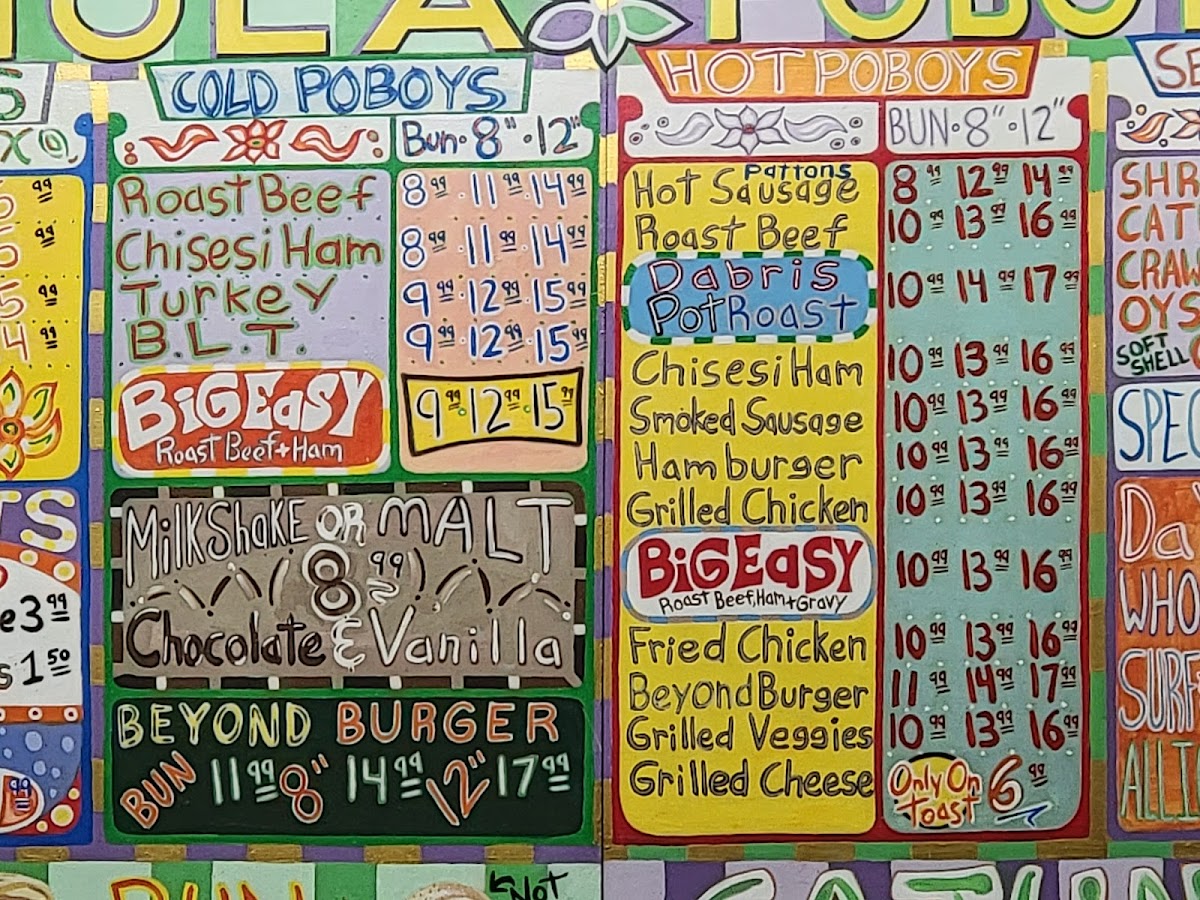 COLD POBOYS
Bun · 8" · 12"
Roast Beef 8 99 · 11 99 · 14 99
Chisesi Ham 8 99 · 11 99 · 14 99
Turkey 9 99 · 12 99 · 15 99
B.L.T. 9 99 · 12 99 · 15 99
BiGEaSY 9 99 · 12 99 · 15 99
Roast Beef + Ham
MilKShaKE OR MALT
8 99
Chocolate & Vanilla
BEYOND BURGER
BUN 11 99 8" 14 99 12" 17 99
HOT POBOYS
BUN · 8" · 12"
Pattons
Hot Sausage 8 99 12 99 14 99
Roast Beef 10 99 13 99 16 99
Dabris
Pot Roast 10 99 14 99 17 99
Chisesi Ham 10 99 13 99 16 99
Smoked Sausage 10 99 13 99 16 99
Hamburger 10 99 13 99 16 99
Grilled Chicken 10 99 13 99 16 99
BiGEaSY 10 99 13 99 16 99
Roast Beef, Ham + Gravy
Fried Chicken 10 99 13 99 16 99
Beyond Burger 11 99 14 99 17 99
Grilled Veggies 10 99 13 99 16 99
Grilled Cheese Only On Toast 6 99
3 99
1 50
SOFT
SHELL
NOT